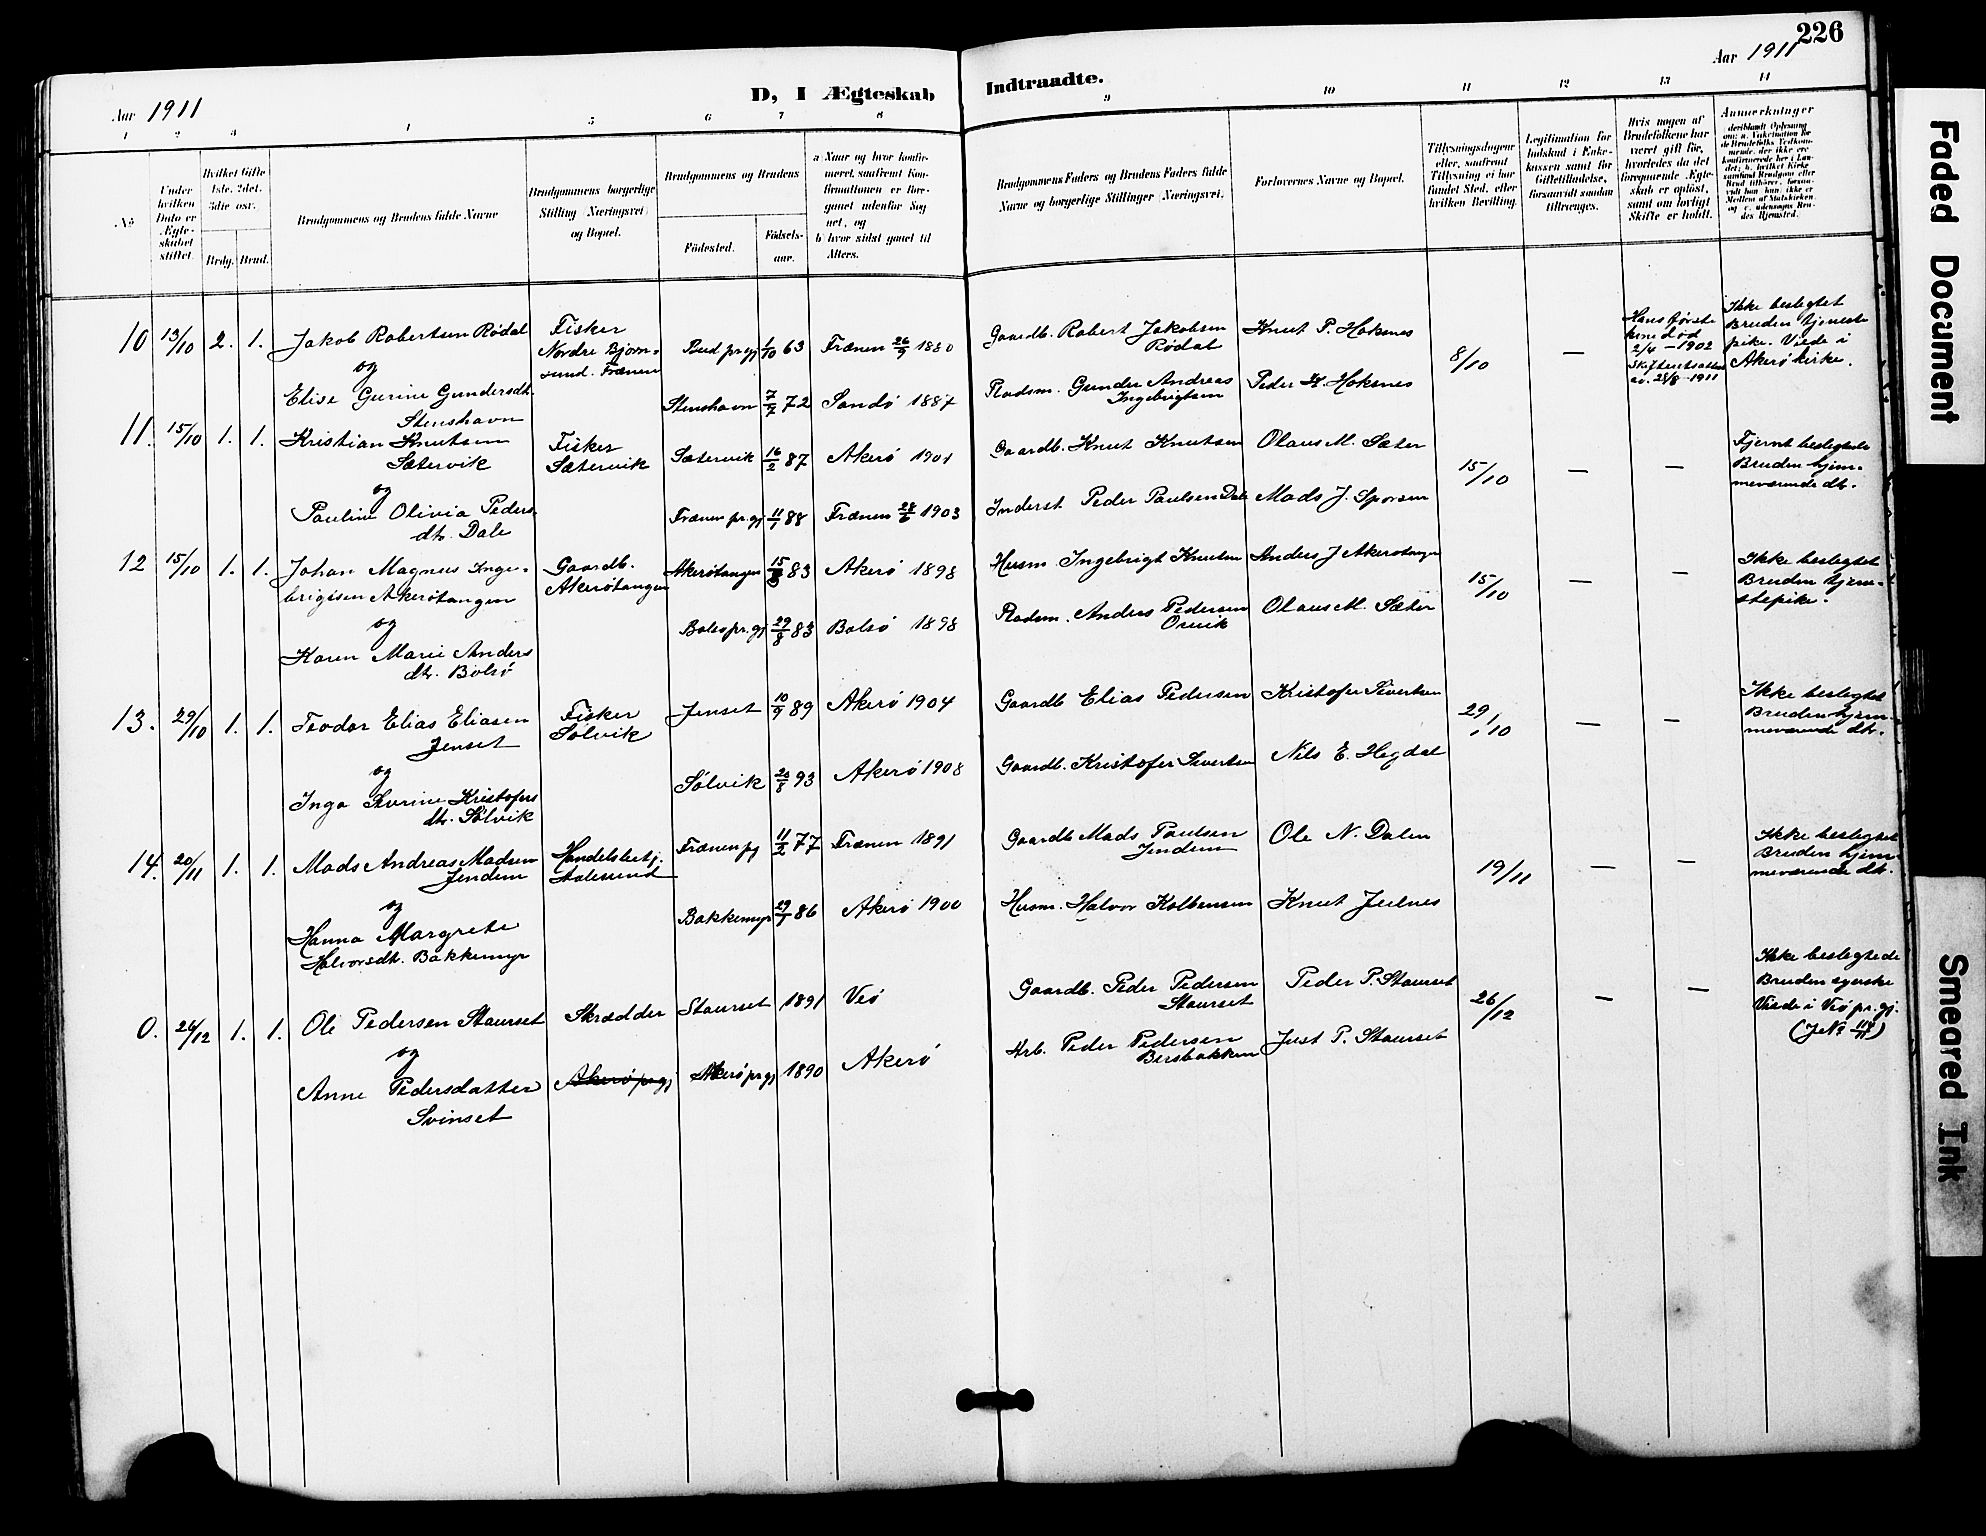 226
Aar 1911
D, I Ægteskab Indtraadte.
Aar 1911
1 2 3 4 5 6 7 8 9 10 11 12 13 14
No
Under
hvilken
Dato er
Ægte-
skabet
stiftet.
Hvilket Gifte
1ste. 2det.
3die osv.
Brdg. Brud.
Brudgommens og Brudens fulde Navne
Brudgommens borgerlige
Stilling (Næringsvei)
og Bopæl.
Brudgommens og Brudens
Födested.
Födsels-
aar.
a) Naar og hvor konfir-
meret, saafremt Kon-
firmationen er fore-
gaaet udenfor Sog
net, og
b) hvor sidst gaaet til
Alters.
Brudgommens Faders og Brudens Faders fulde
Navne og borgerlige Stillinger (Næringsvei).
Forlovernes Navne og Bopæl.
Tillysningsdagene
eller, saafremt
Tillysning ei har
fundet Sted, efter
hvilken Bevilling.
Legitimation for
Indskud i Enke-
kassen samt for
Giftetilladelse,
forsaavidt saadan
tiltrænges.
Hvis nogen af
Brudefolkene har
været gift för,
hvorledes da det
foregaaende Ægte-
skab er oplöst,
samt om lovligt
Skifte er holdt.
Anmærkninger
10 13/10 2. 1. Jakob Robertsen Rødal
og
Elise Gurine Gundersdt.
Stenshavn
Fisker
Nordre Bjørn-
sund. Frænen
Bud prgj 1/10 63 Frænen 26/9 1880
Stenshavn 7/7 72 Sandø 1887
Gaardb. Robert Jakobsen
Rødal
Knut P. Hoksnes
Rodsm. Gunder Andreas
Ingebrigtsen
Peder K. Hoksnes
8/10 —
Hans første
kone død
2/4 - 1902
Skifteattest
av. 28/8 1911
Ikke beslegtet
Bruden tjeneste
pike. Viede i
Akerø kirke.
11. 15/10 1. 1. Kristian Knutsen
Sætervik
og
Pauline Olivia Peders
dtr. Dale
Fisker
Sætervik
Sætervik 16/2 87 Akerø 1901
Frænen pr.gj 11/1 88 Frænen 28/6 1903
Gaardb. Knut Knutsen Olaus M. Sæter
Inderst Peder Paulsen Dale Mads J. Sporsem
15/10 — —
Fjernt beslegtede
Bruden hjem-
meværende dtr.
12 15/10 1. 1. Johan Magnus Inge-
brigtsen Akerøtangen
og
Karen Marie Anders
dtr. Bolsø
Gaardb.
Akerøtangen
Akerøtangen 83 Akerø 1898
Bolsø pr.gj 29/8 83 Bolsø 1898
Husm. Ingebrigt Knutsen Anders J Akerøtangen
Rodsm. Anders Pedersen
Orvik
Olaus M. Sæter
15/10 — —
Ikke beslegtet
Bruden tjene-
stepike.
13. 29/10 1. 1. Teodor Elias Eliasen
Jenset
og
Inga Sivrine Kristofers
dtr. Sølvik
Fisker
Sølvik
Jenset 10/9 89 Akerø 1904
Sølvik 20/8 93 Akerø 1908
Gaardb Elias Pedersen Kristofer Sivertsen
Gaardb. Kristofer Sivertsen Nils E. Hegdal
29/10 — —
Ikke beslegtet
Bruden hjem-
meværende dtr.
14. 20/11 1. 1. Mads Andreas Madsen
Jendem
og
Hanna Margrete
Halvorsdt. Bakkemyr
Handelsbetj.
Aalesund
Frænen pg 11/2 77 Frænen 1891
Bakkemyr 29/1 86 Akerø 1900
Gaardb Mads Paulsen
Jendem
Ole N. Dalen
Husm. Halvor Kolbensen Knut Julnes
19/11 — —
Ikke beslegtet
Bruden hjem-
meværende dtr.
0. 26/12 1. 1. Ole Pedersen Staurset
og
Anne Pedersdatter
Svinset
Skrædder
Akerø prgj
Staurset 1891 Veø
Akerø prgj 1890 Akerø
Gaardb. Peder Pedersen
Staurset
Peder P. Staurset
Arb. Peder Pedersen
Bersbakken
Just P. Staurset
26/12 — —
Ikke beslegtede
Bruden syerske
Viede i Veø pr.gj.
Faded Document
Smeared Ink